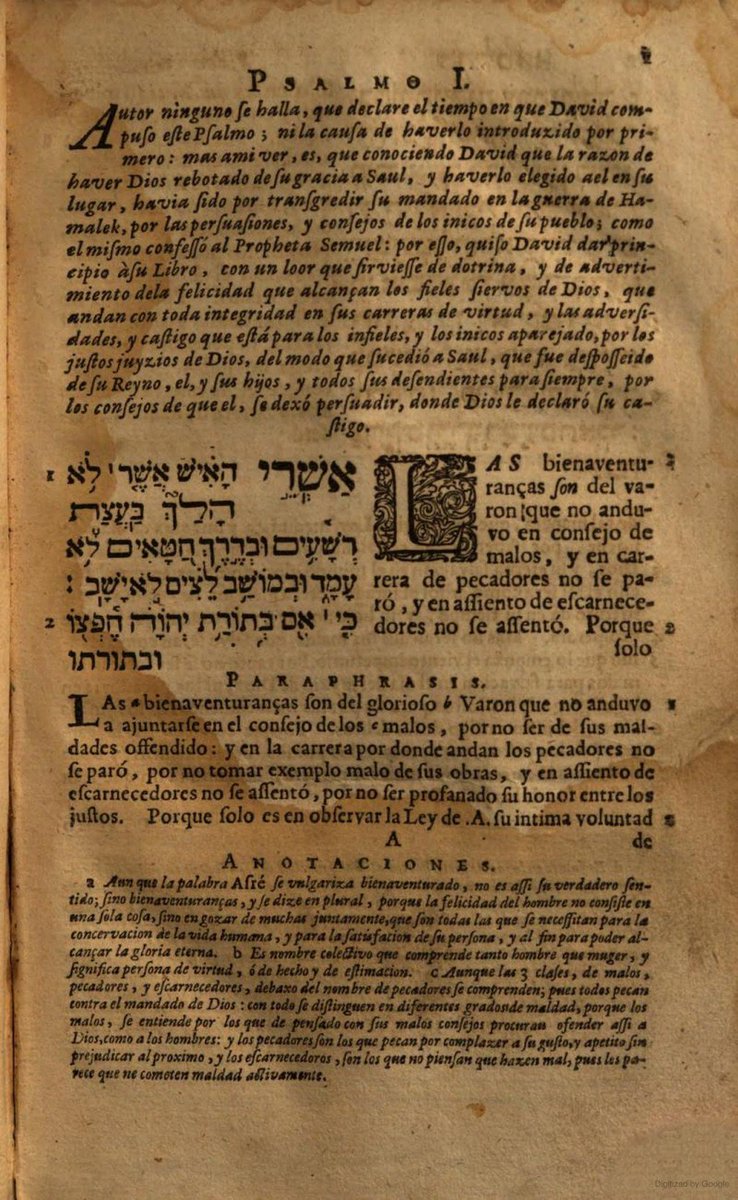 1
PSALMO I.
Autor ninguno se halla, que declare el tiempo en que David com-
puso este Psalmo; ni la causa de haverlo introduzido por pri-
mero: mas ami ver, es, que conociendo David que la razon de
haver Dios rebotado de su gracia a Saul, y haverlo elegido a el en su
lugar, havia sido por transgredir su mandado en la guerra de Ha-
malek, por las persuasiones, y consejos de los inicos de su pueblo; como
el mismo confessó al Propheta Semuel: por esso, quiso David dar prin-
cipio à su Libro, con un loor que sirviesse de dotrina, y de adverti-
miento dela felicidad que alcançan los fieles siervos de Dios, que
andan con toda integridad en sus carreras de virtud, y las adversi-
dades, y castigo que está para los infieles, y los inicos aparejado, por los
justos juyzios de Dios, del modo que sucedió a Saul, que fue desposseido
de su Reyno, el, y sus hijos, y todos sus desendientes para siempre, por
los consejos de que el, se dexó persuadir, donde Dios le declaró su ca-
stigo.
1 אַשְׁרֵי הָאִישׁ אֲשֶׁר ׀ לֹא
הָלַךְ בַּעֲצַת
רְשָׁעִים וּבְדֶרֶךְ חַטָּאִים לֹא
עָמָד וּבְמוֹשַׁב לֵצִים לֹא יָשָׁב :
2 כִּי אִם בְּתוֹרַת יְהוָה חֶפְצוֹ
ובתורתו
LAS bienaventu- 1
ranças son del va-
ron que no andu-
vo en consejo de
malos, y en car-
rera de pecadores no se pa-
ró, y en assiento de escarnece-
dores no se assentó. Porque 2
solo
PARAPHRASIS.
LAs a bienaventuranças son del glorioso b Varon que no anduvo 1
a ajuntarse en el consejo de los c malos, por no ser de sus mal-
dades offendido: y en la carrera por donde andan los pecadores no
se paró, por no tomar exemplo malo de sus obras, y en assiento de
escarnecedores no se assentó, por no ser profanado su honor entre los
justos. Porque solo es en observar la Ley de .A. su intima voluntad 2
A de
ANOTACIONES.
a Aun que la palabra Asré se vulgariza bienaventurado, no es assi su verdadero sen-
tido; sino bienaventuranças, y se dize en plural, porque la felicidad del hombre no consiste en
una sola cosa, sino en gozar de muchas juntamente, que son todas las que se necessitan para la
concervacion de la vida humana, y para la satisfacion de su persona, y al fin para poder al-
cançar la gloria eterna. b Es nombre colectivo que comprende tanto hombre que muger, y
significa persona de virtud, ó de hecho y de estimacion. c Aunque las 3 clases, de malos,
pecadores, y escarnecedores, debaxo del nombre de pecadores se comprenden; pues todos pecan
contra el mandado de Dios: con todo se distinguen en diferentes grados de maldad, porque los
malos, se entiende por los que de pensado con sus malos consejos procuran ofender assi a
Dios, como a los hombres: y los pecadores son los que pecan por complazer a su gusto, y apetito sin
prejudicar al proximo, y los escarnecedores, son los que no piensan que hazen mal, pues les pa-
rece que no cometen maldad activamente.
Digitized by Google